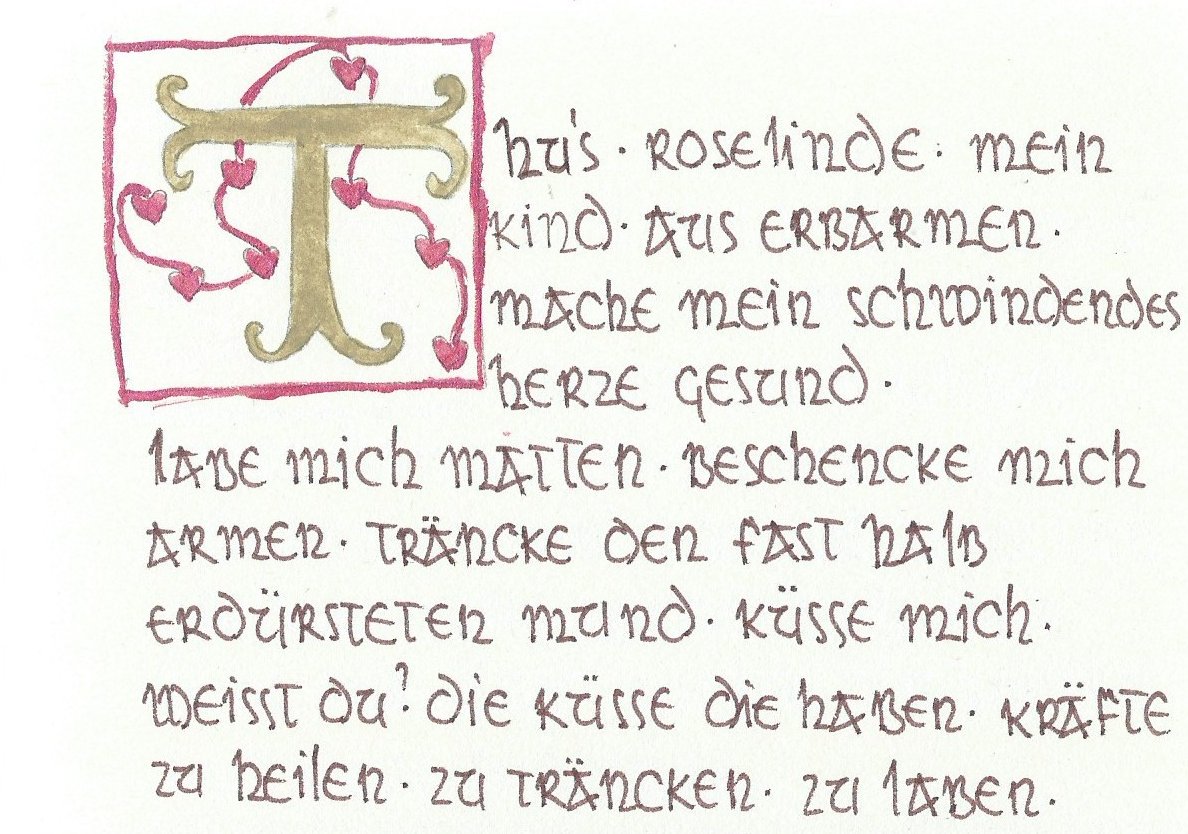 Thu's · Roselinde · mein
kind · aus erbarmen ·
mache mein schwindendes
herze gesund ·
labe mich matten · beschencke mich
armen · träncke den fast halb
erdürsteten mund · küsse mich ·
weisst du? die küsse die haben · kräfte
zu heilen · zu träncken · zu laben ·